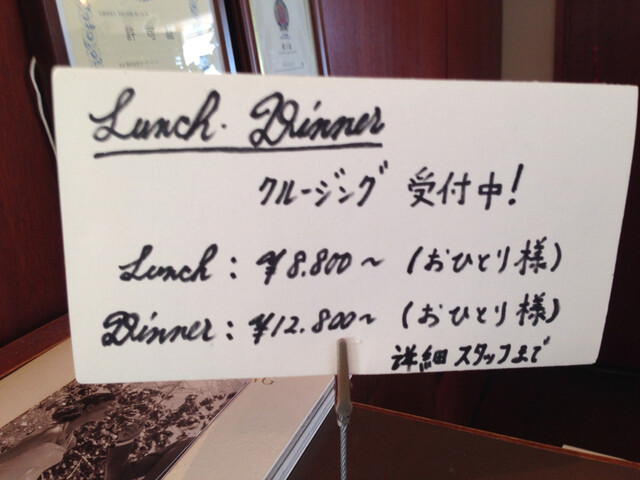 Lunch. Dinner
クルージング 受付中!
Lunch: ¥8.800~ (おひとり様)
Dinner: ¥12.800~ (おひとり様)
詳細スタッフまで